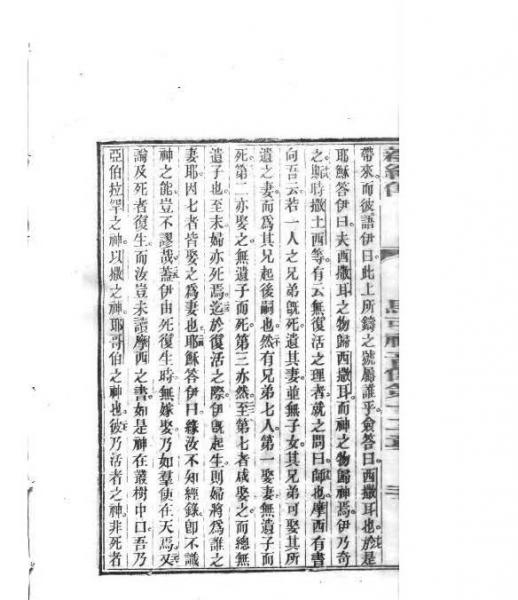 帶來而彼語伊曰此上所鑄之號屬誰乎僉答曰西撒耳也於是
耶穌答伊曰夫西撒耳之物歸西撒耳而神之物歸神焉伊乃奇
之時撒土西等有云無復活之理者就之問曰師也摩西有書
向吾云若一人之兄弟旣死遺其妻並無子女其兄弟可娶其所
遺之妻而為其兄起後嗣也然有兄弟七人第一娶妻無遺子而
死第二亦娶之無遺子而死第三亦然至第七者咸娶之而總無
遺子也至末婦亦死焉迄於復活之際伊旣起生則婦將為誰之
妻耶因七者皆娶之為妻也耶穌答伊曰緣汝不知經錄卽不識
神之能豈不謬哉蓋伊由死復生時無嫁娶乃如羣使在天焉又
論及死者復生而汝豈未讀摩西之書如是神在叢樹中曰吾乃
亞伯拉罕之神以撒之神耶哥伯之神也彼乃活者之神非死者